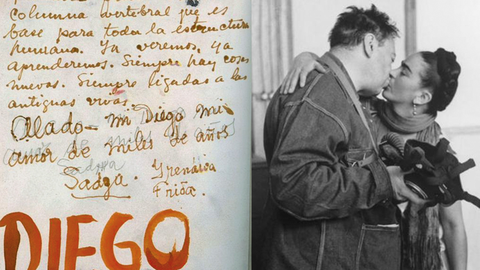 columna vertebral que es
base para toda la estructura
humana. Ya veremos, ya
aprenderemos. Siempre hay cosas
nuevas. Siempre ligadas a las
antiguas vivas.
Alado— mi Diego mi
amor de miles de años
Sadga. Yrenáica
Frida.
DIEGO